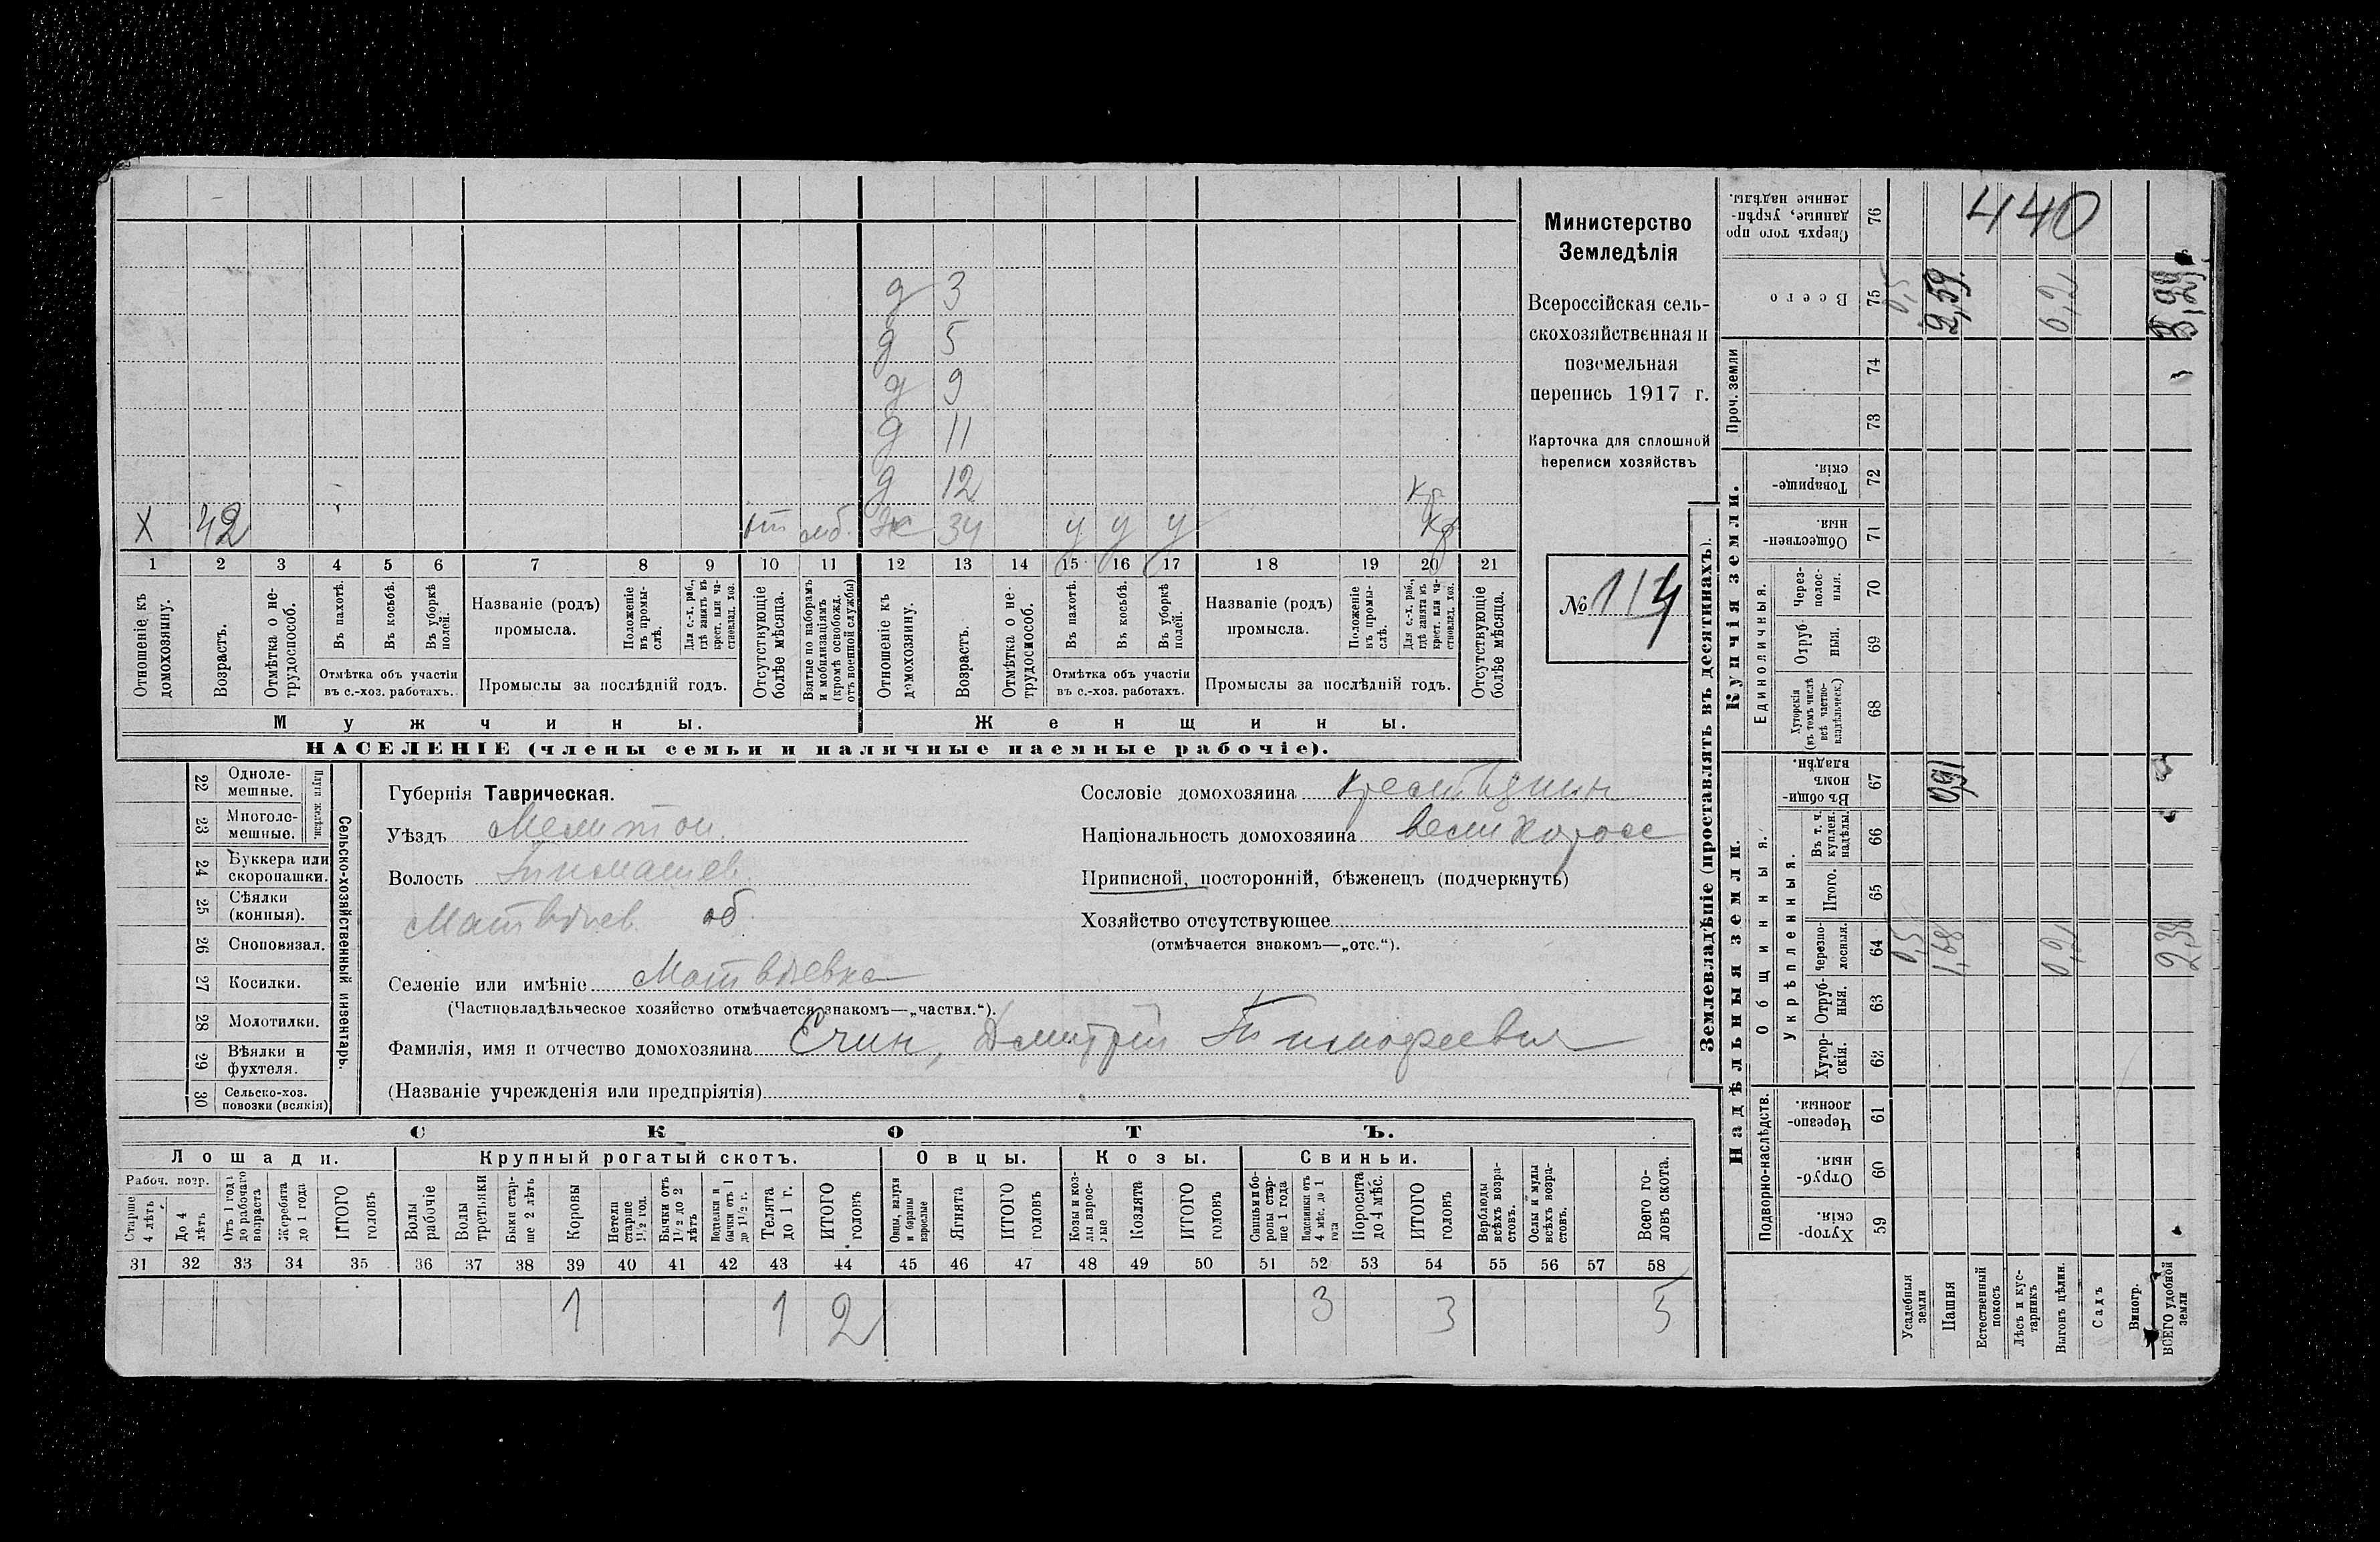 440
Министерство
Земледѣлія
Всероссійская сель-
скохозяйственная и
поземельная
перепись 1917 г.
Карточка для сплошной
переписи хозяйствъ
№ 114
д 3
д 5
д 9
д 11
д 12 кр
Х 42 от моб. Ж 34 у у у кр
1 2 3 4 5 6 7 8 9 10 11 12 13 14 15 16 17 18 19 20 21
Отношеніе къ домохозяину.
Возрастъ.
Отмѣтка о не-трудоспособ.
Въ пахотѣ.
Въ косьбѣ.
Въ уборкѣ полей.
Отмѣтка объ участіи въ с.-хоз. работахъ.
Названіе (родъ) промысла.
Положеніе въ промы-слѣ.
Для с.-х. раб., гдѣ занятъ въ крест. или ча-стновлад. хоз.
Промыслы за послѣдній годъ.
Отсутствующіе болѣе мѣсяца.
Взятые по наборамъ и мобилизаціямъ (кромѣ освобожд. отъ военной службы)
Отношеніе къ домохозяину.
Возрастъ.
Отмѣтка о не-трудоспособ.
Въ пахотѣ.
Въ косьбѣ.
Въ уборкѣ полей.
Отмѣтка объ участіи въ с.-хоз. работахъ.
Названіе (родъ) промысла.
Положеніе въ промы-слѣ.
Для с.-х. раб., гдѣ занята въ крест. или ча-стновлад. хоз.
Промыслы за послѣдній годъ.
Отсутствующіе болѣе мѣсяца.
Мужчины.
Женщины.
НАСЕЛЕНІЕ (члены семьи и наличные наемные рабочіе).
22 Однолемешные.
23 Многолемешные.
Плуги желѣзн.
24 Буккера или скоропашки.
25 Сѣялки (конныя).
26 Сноповязал.
27 Косилки.
28 Молотилки.
29 Вѣялки и фухтеля.
30 Сельско-хоз. повозки (всякія)
Сельско-хозяйственный инвентарь.
Губернія Таврическая.
Уѣздъ Мелитоп.
Волость Тимашев.
Матвѣев. об.
Селеніе или имѣніе Матвѣевка
(Частновладѣльческое хозяйство отмѣчается знакомъ—„частвл.“).
Фамилія, имя и отчество домохозяина Ечин, Дмитрій Тимофеевич
(Названіе учрежденія или предпріятія)
Сословіе домохозяина крестьянин
Національность домохозяина великоросс
Приписной, посторонній, бѣженецъ (подчеркнуть)
Хозяйство отсутствующее
(отмѣчается знакомъ—„отс.“).
СКОТЪ.
Лошади. Крупный рогатый скотъ. Овцы. Козы. Свиньи.
Рабоч. возр.
Старше 4 лѣтъ
До 4 лѣтъ
Отъ 1 года до рабочаго возраста
Жеребята до 1 года
ИТОГО головъ
Волы рабочіе
Волы третьяки
Быки стар-ше 2 лѣтъ
Коровы
Нетели старше 1½ год.
Бычки отъ 1½ до 2 лѣтъ
Подтелки и бычки отъ 1 до 1½ г.
Телята до 1 г.
ИТОГО головъ
Овцы, валухи и бараны взрослые
Ягнята
ИТОГО головъ
Козы и коз-лы взрос-лые
Козлята
ИТОГО головъ
Свиньи и бо-ровы стар-ше 1 года
Подсвинки отъ 4 мѣс. до 1 года
Поросята до 4 мѣс.
ИТОГО головъ
Верблюды всѣхъ возра-стовъ.
Ослы и мулы всѣхъ возра-стовъ.
Всего го-ловъ скота.
31 32 33 34 35 36 37 38 39 40 41 42 43 44 45 46 47 48 49 50 51 52 53 54 55 56 57 58
1 1 2 3 3 5
Землевладѣніе (проставлять въ десятинахъ).
Надѣльныя земли.
Купчія земли.
Проч. земли
Подворно-наслѣдств.
Общинныя.
Укрѣпленныя.
Единоличныя.
Хутор-скія. 59
Отруб-ныя. 60
Черезпо-лосныя. 61
Хутор-скія. 62
Отруб-ныя. 63
Черезпо-лосныя. 64
Итого. 65
Въ т. ч. куплен. надѣлы. 66
Въ общин-номъ владѣн. 67
Хуторскія (въ томъ числѣ всѣ частно-владѣльческ.) 68
Отруб-ныя. 69
Через-полос-ныя. 70
Обществен-ныя. 71
Товарище-скія. 72
73
74
Всего 75
Сверхъ того про-данные, укрѣп-ленные надѣлы. 76
Усадебныя земли 0,5 0,5
Пашня 1,68 0,91 2,59
Естественный покосъ
Лѣсъ и кус-тарникъ
Выгонъ цѣлин. 0,2 0,2
Садъ
Виногр.
ВСЕГО удобной земли 2,38 3,29